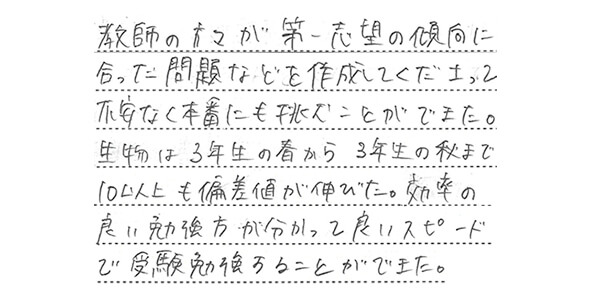 教師の方々が第一志望の傾向に
合った問題などを作成してくださって
不安なく本番にも挑むことができた。
生物は3年生の春から3年生の秋まで
10以上も偏差値が伸びた。効率の
良い勉強方が分かって良いスピード
で受験勉強することができた。